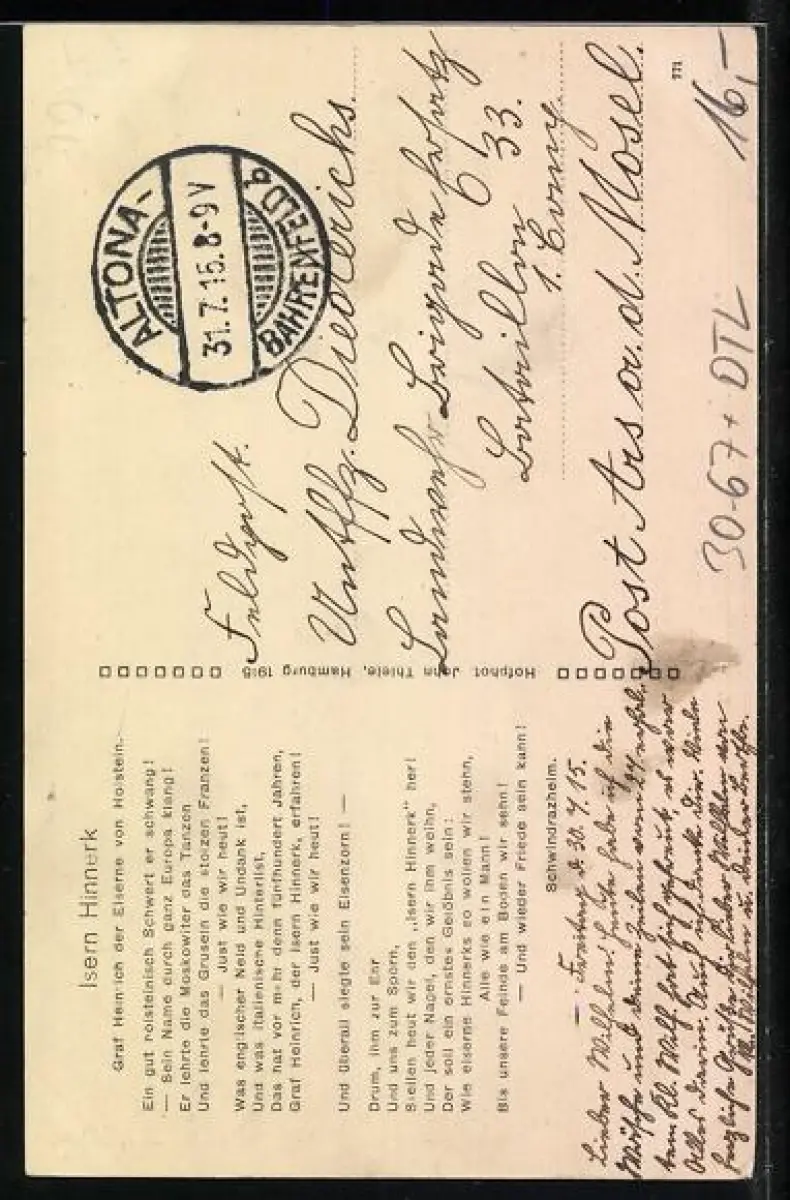 Isern Hinnerk
Graf Heinrich der Eiserne von Holstein.
Ein gut holsteinisch Schwert er schwang!
— Sein Name durch ganz Europa klang!
Er lehrte die Moskowiter das Tanzen
Und lehrte das Gruseln die stolzen Franzen!
— Just wie wir heut!
Was englischer Neid und Undank ist,
Und was italienische Hinterlist,
Das hat vor mehr denn fünfhundert Jahren,
Graf Heinrich, der Isern Hinnerk, erfahren!
— Just wie wir heut!
Und überall siegte sein Eisenzorn! —
Drum, ihm zur Ehr
Und uns zum Sporn,
Stellen heut wir den „Isern Hinnerk" her!
Und jeder Nagel, den wir ihm weihn,
Der soll ein ernstes Gelöbnis sein:
Wie eiserne Hinnerks so wollen wir stehn,
Alle wie ein Mann!
Bis unsere Feinde am Boden wir sehn!
— Und wieder Friede sein kann!
Schwindrazheim.
— Freitag d. 30.7.15.
Lieber Wilhelm! Heute habe ich die
Wäsche und deine Zeilen vom 27 erhal.
Alles darin. Auch ich danke Dir. Viele
herzliche Grüße Dir lieber Wilhelm von
Hofphot. John Thiele, Hamburg 1915
ALTONA-
31.7.15.8-9V
BAHRENFELD b
Feldpost.
Untffz. Diederichs.
Landwehr Brigade Ersatz
Bataillon 33.
1. Comp.
Post Ars a. d. Mosel.
771
16,-
30-67+ DTL